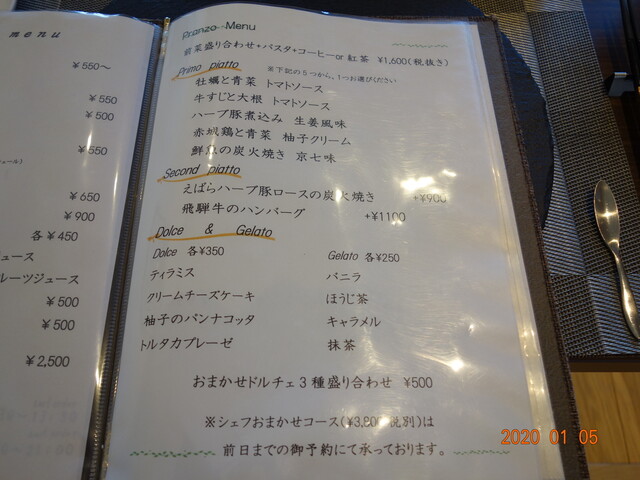 menu
¥550～
¥550
¥500
¥550
¥650
¥900
各¥450
ュース
ルーツジュース
¥500
¥500
¥2,500
Pranzo Menu
前菜盛り合わせ+パスタ+コーヒーor紅茶 ¥1,600(税抜き)
Primo piatto ※下記の5つから、1つお選びください
牡蠣と青菜 トマトソース
牛すじと大根 トマトソース
ハーブ豚煮込み 生姜風味
赤城鶏と青菜 柚子クリーム
鮮魚の炭火焼き 京七味
Second piatto
えばらハーブ豚ロースの炭火焼き +¥900
飛騨牛のハンバーグ +¥1100
Dolce & Gelato
Dolce 各¥350 Gelato 各¥250
ティラミス バニラ
クリームチーズケーキ ほうじ茶
柚子のパンナコッタ キャラメル
トルタカプレーゼ 抹茶
おまかせドルチェ3種盛り合わせ ¥500
※シェフおまかせコース(¥3,800 税別)は
前日までの御予約にて承っております。
2020 01 05